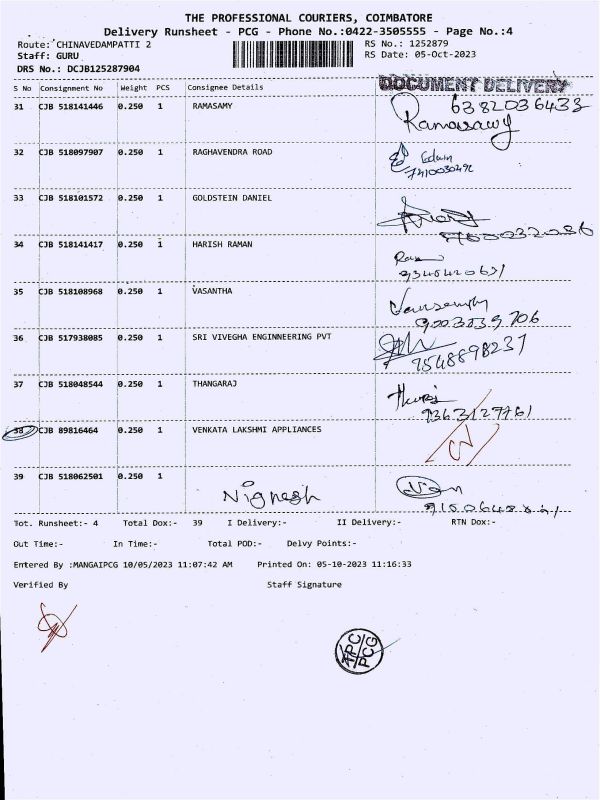 THE PROFESSIONAL COURIERS, COIMBATORE
Delivery Runsheet - PCG - Phone No.:0422-3505555 - Page No.:4
Route: CHINAVEDAMPATTI 2 RS No.: 1252879
Staff: GURU RS Date: 05-Oct-2023
DRS No.: DCJB125287904
DOCUMENT DELIVERY
S No Consignment No Weight PCS Consignee Details
31 CJB 518141446 0.250 1 RAMASAMY 6382036433
Ramasawy
32 CJB 518097907 0.250 1 RAGHAVENDRA ROAD Edwin
33 CJB 518101572 0.250 1 GOLDSTEIN DANIEL
34 CJB 518141417 0.250 1 HARISH RAMAN
9345420631
35 CJB 518108968 0.250 1 VASANTHA
36 CJB 517938085 0.250 1 SRI VIVEGHA ENGINNEERING PVT
9548898237
37 CJB 518048544 0.250 1 THANGARAJ
9363127761
38 CJB 89816464 0.250 1 VENKATA LAKSHMI APPLIANCES
39 CJB 518062501 0.250 1
Nignesh
Tot. Runsheet:- 4 Total Dox:- 39 I Delivery:- II Delivery:- RTN Dox:-
Out Time:- In Time:- Total POD:- Delvy Points:-
Entered By :MANGAIPCG 10/05/2023 11:07:42 AM Printed On: 05-10-2023 11:16:33
Verified By Staff Signature
TPC
PCG